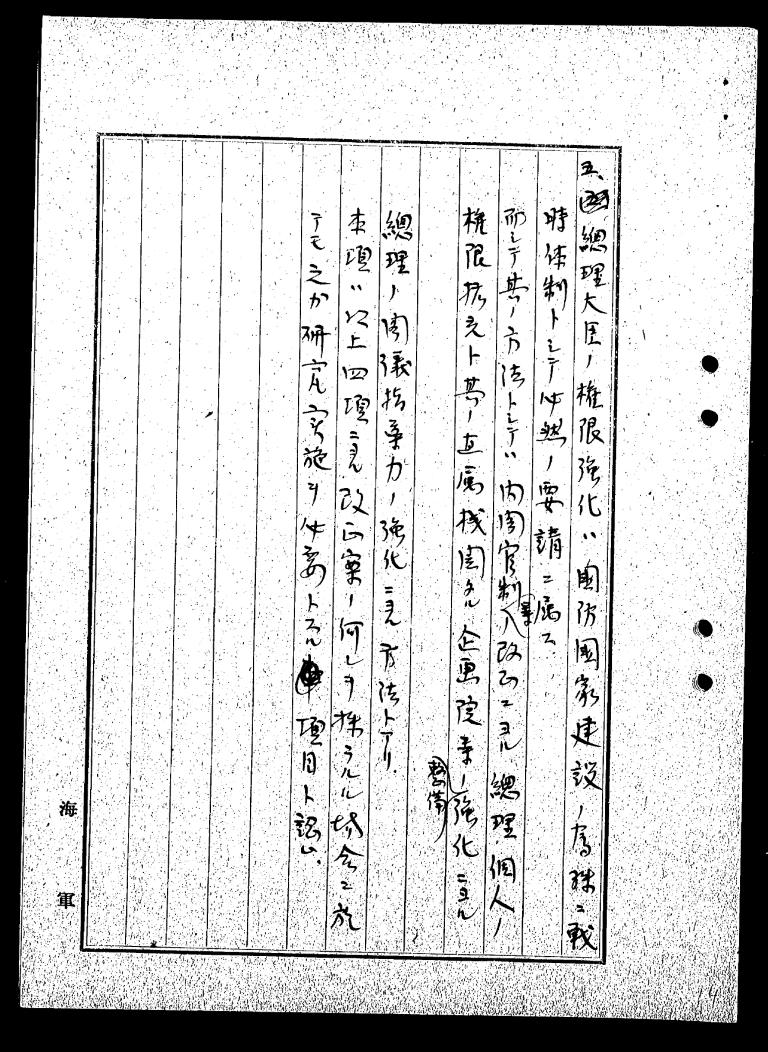 五、總理大臣ノ権限強化ハ國防國家建設ノ為殊ニ戦
時体制トシテ必然ノ要請ニ属ス.
而シテ其ノ方法トシテハ内閣官制等ノ改正ニヨル総理個人ノ
権限拡充ト其ノ直属機関タル企画院等ノ強化整備ニヨル
總理ノ閣議指導力ノ強化ニヨル方法トアリ.
本項ハ以上四項ニヨル改正案ノ何レヲ採ラルル場合ニ於
テモ之カ研究実施ヲ必要トスル項目ト認ム.
海軍
14